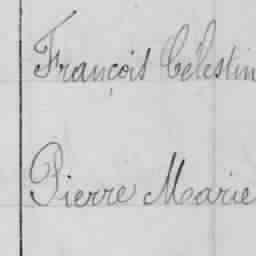 François Célestin
Pierre Marie